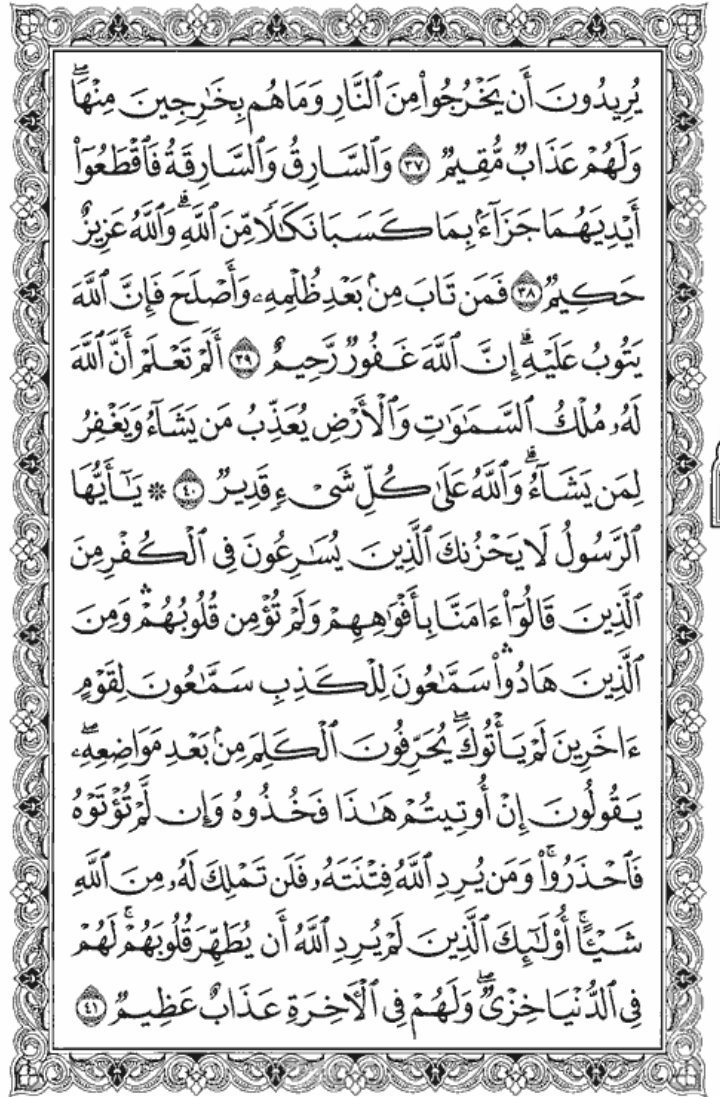 يُرِيدُونَ أَن يَخْرُجُوا۟ مِنَ ٱلنَّارِ وَمَا هُم بِخَـٰرِجِينَ مِنْهَا ۖ
وَلَهُمْ عَذَابٌ مُّقِيمٌ ٣٧ وَٱلسَّارِقُ وَٱلسَّارِقَةُ فَٱقْطَعُوٓا۟
أَيْدِيَهُمَا جَزَآءًۢ بِمَا كَسَبَا نَكَـٰلًا مِّنَ ٱللَّهِ ۗ وَٱللَّهُ عَزِيزٌ
حَكِيمٌ ٣٨ فَمَن تَابَ مِنۢ بَعْدِ ظُلْمِهِۦ وَأَصْلَحَ فَإِنَّ ٱللَّهَ
يَتُوبُ عَلَيْهِ ۗ إِنَّ ٱللَّهَ غَفُورٌ رَّحِيمٌ ٣٩ أَلَمْ تَعْلَمْ أَنَّ ٱللَّهَ
لَهُۥ مُلْكُ ٱلسَّمَـٰوَٰتِ وَٱلْأَرْضِ يُعَذِّبُ مَن يَشَآءُ وَيَغْفِرُ
لِمَن يَشَآءُ ۗ وَٱللَّهُ عَلَىٰ كُلِّ شَىْءٍ قَدِيرٌ ٤٠ ۞ يَـٰٓأَيُّهَا
ٱلرَّسُولُ لَا يَحْزُنكَ ٱلَّذِينَ يُسَـٰرِعُونَ فِى ٱلْكُفْرِ مِنَ
ٱلَّذِينَ قَالُوٓا۟ ءَامَنَّا بِأَفْوَٰهِهِمْ وَلَمْ تُؤْمِن قُلُوبُهُمْ ۛ وَمِنَ
ٱلَّذِينَ هَادُوا۟ ۛ سَمَّـٰعُونَ لِلْكَذِبِ سَمَّـٰعُونَ لِقَوْمٍ
ءَاخَرِينَ لَمْ يَأْتُوكَ ۖ يُحَرِّفُونَ ٱلْكَلِمَ مِنۢ بَعْدِ مَوَاضِعِهِۦ ۖ
يَقُولُونَ إِنْ أُوتِيتُمْ هَـٰذَا فَخُذُوهُ وَإِن لَّمْ تُؤْتَوْهُ
فَٱحْذَرُوا۟ ۚ وَمَن يُرِدِ ٱللَّهُ فِتْنَتَهُۥ فَلَن تَمْلِكَ لَهُۥ مِنَ ٱللَّهِ
شَيْـًٔا ۚ أُو۟لَـٰٓئِكَ ٱلَّذِينَ لَمْ يُرِدِ ٱللَّهُ أَن يُطَهِّرَ قُلُوبَهُمْ ۚ لَهُمْ
فِى ٱلدُّنْيَا خِزْىٌ ۖ وَلَهُمْ فِى ٱلْـَٔاخِرَةِ عَذَابٌ عَظِيمٌ ٤١